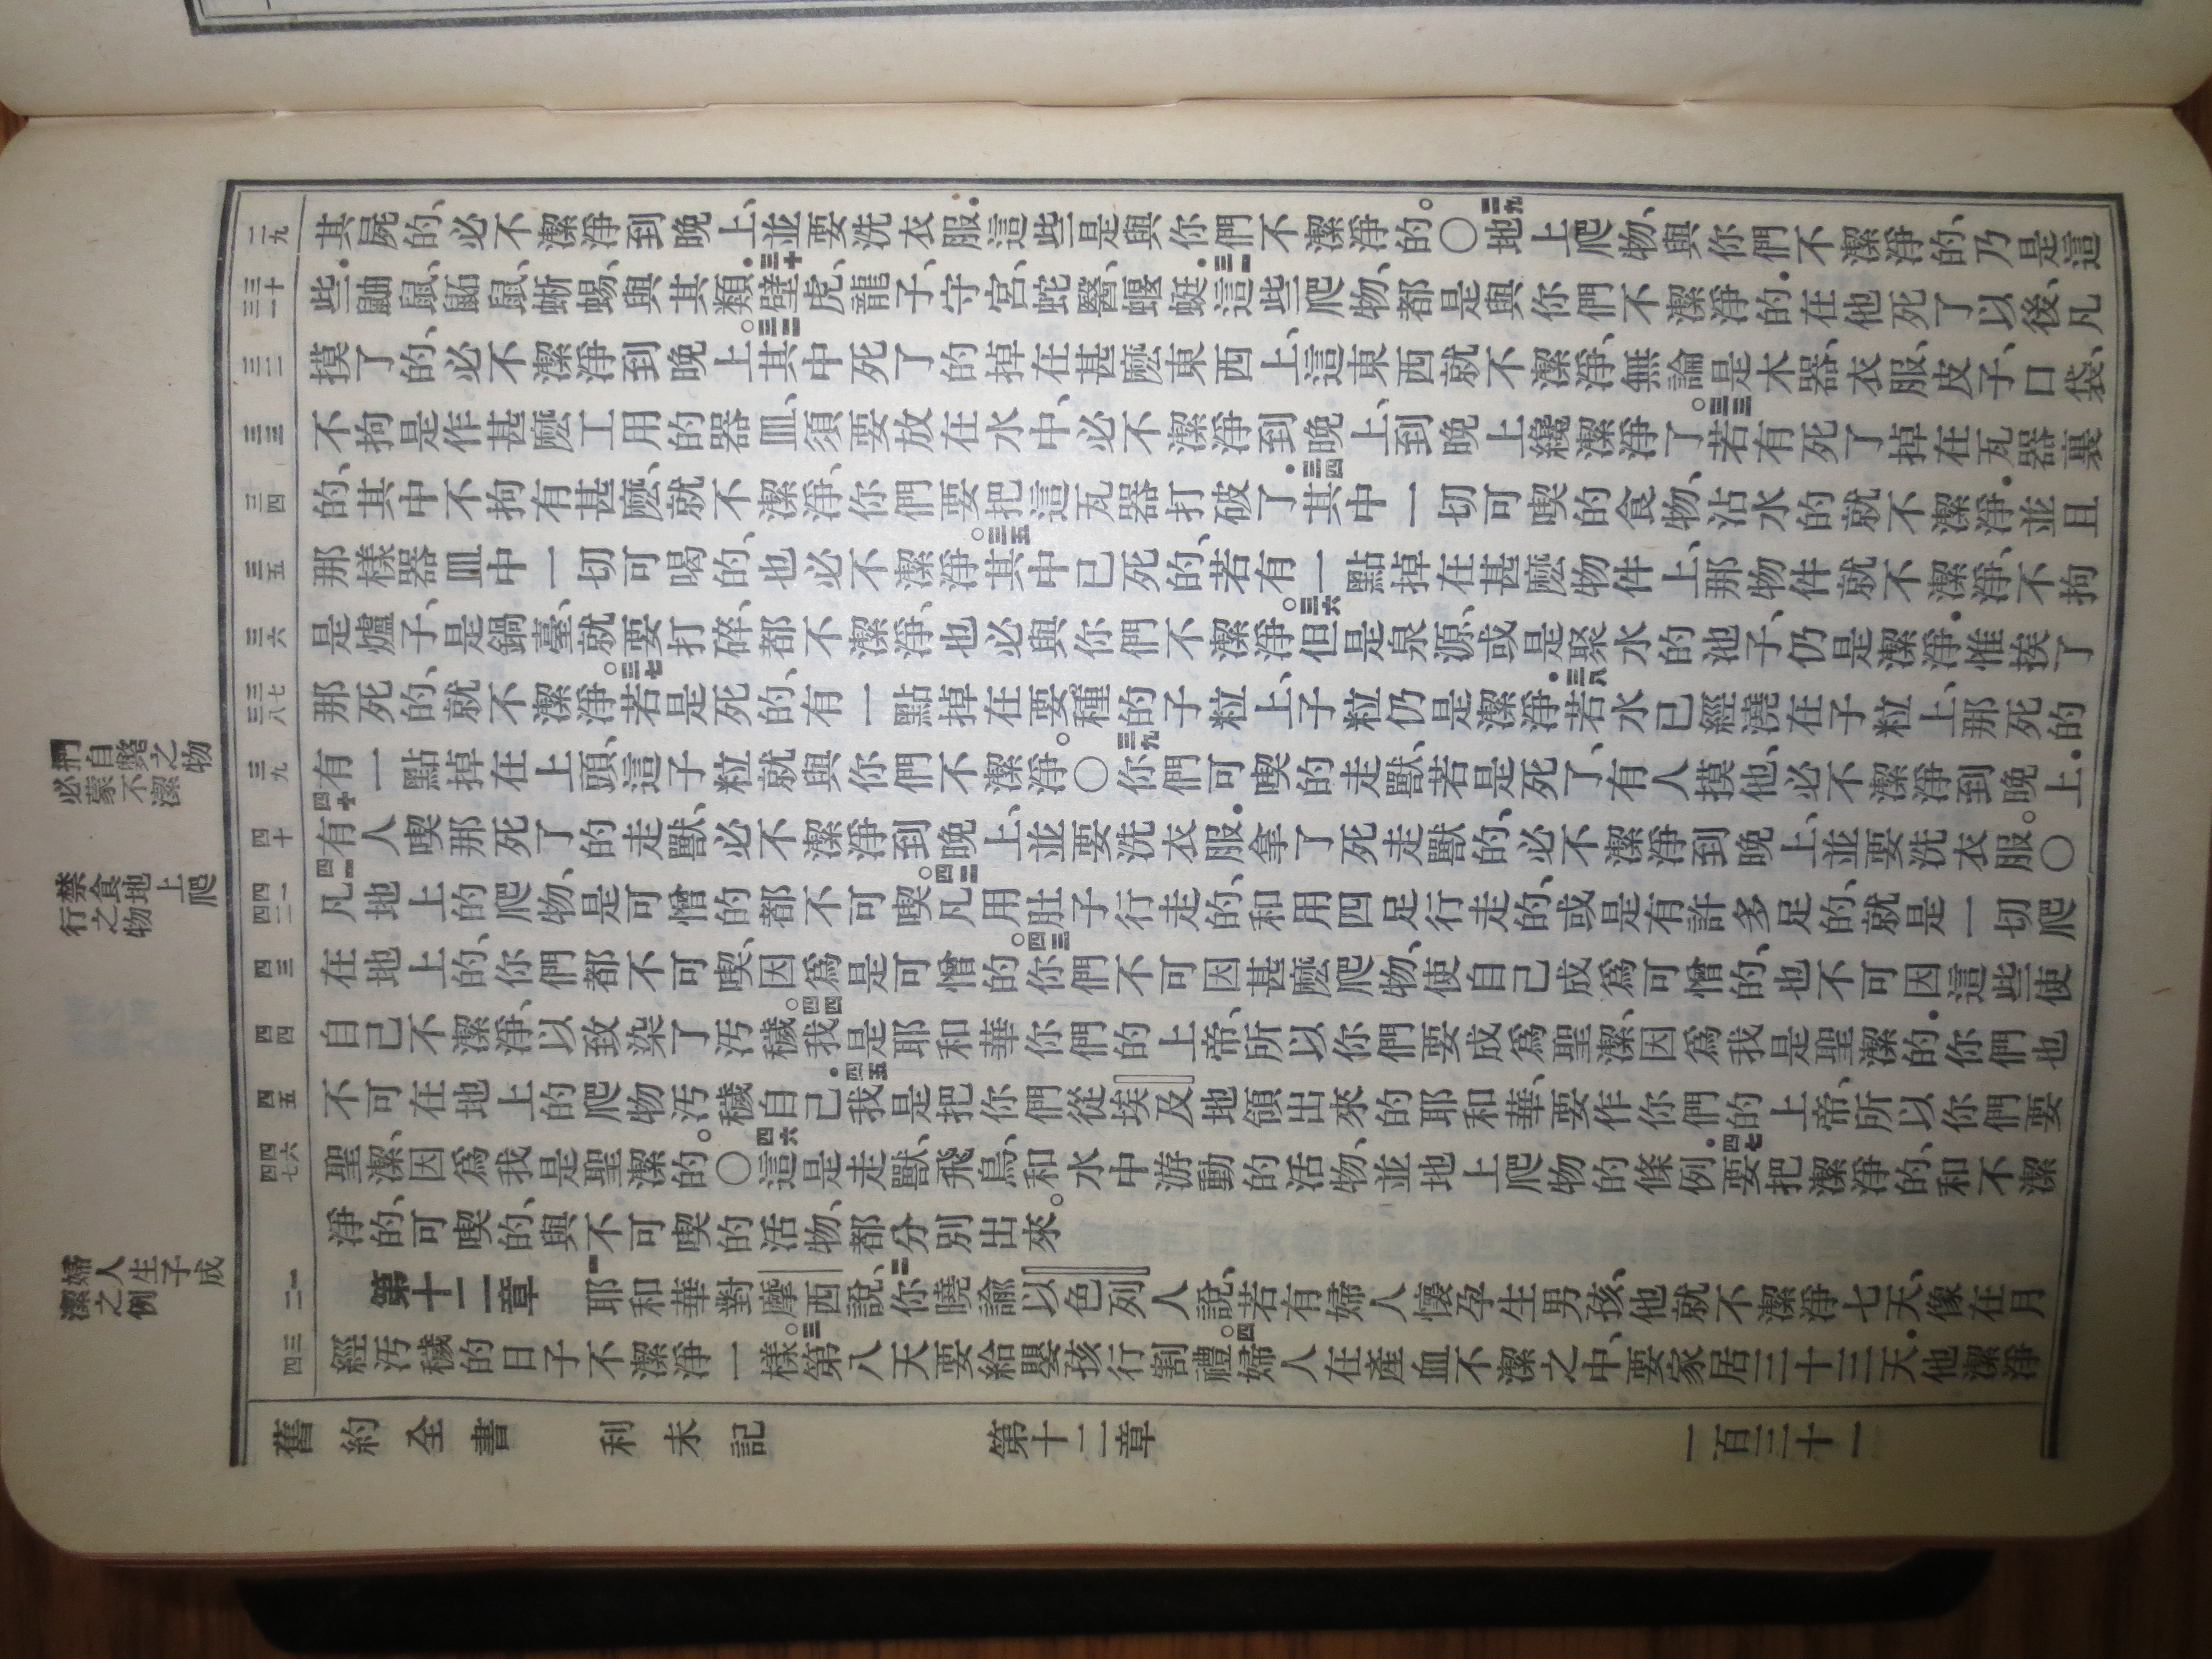 捫自斃之物
必蒙不潔
禁食地上爬
行之物
婦人生子成
潔之例
二九
其屍的、必不潔淨到晚上、並要洗衣服.這些是與你們不潔淨的。〇二九地上爬物、與你們不潔淨的、乃是這
三十 三一
些.鼬鼠、鼫鼠、蜥蜴、與其類.三十壁虎、龍子、守宮、蛇醫、蝘蜓.三一這些爬物、都是與你們不潔淨的.在他死了以後、凡
三二
摸了的、必不潔淨到晚上。三二其中死了的、掉在甚麼東西上、這東西就不潔淨、無論是木器、衣服、皮子、口袋、
三三
不拘是作甚麼工用的器皿、須要放在水中、必不潔淨到晚上、到晚上纔潔淨了。三三若有死了掉在瓦器裏
三四
的、其中不拘有甚麼、就不潔淨、你們要把這瓦器打破了.三四其中一切可喫的食物、沾水的就不潔淨.並且
三五
那樣器皿中一切可喝的、也必不潔淨。三五其中已死的、若有一點掉在甚麼物件上、那物件就不潔淨、不拘
三六
是爐子、是鍋臺、就要打碎、都不潔淨、也必與你們不潔淨。三六但是泉源、或是聚水的池子、仍是潔淨.惟挨了
三七 三八
那死的、就不潔淨。三七若是死的、有一點掉在要種的子粒上、子粒仍是潔淨.三八若水已經澆在子粒上、那死的
三九
有一點掉在上頭、這子粒就與你們不潔淨。〇三九你們可喫的走獸、若是死了、有人摸他、必不潔淨到晚上.
四十
四十有人喫那死了的走獸、必不潔淨到晚上、並要洗衣服.拿了死走獸的、必不潔淨到晚上、並要洗衣服。〇
四一 四二
四一凡地上的爬物、是可憎的都不可喫。四二凡用肚子行走的、和用四足行走的、或是有許多足的、就是一切爬
四三
在地上的、你們都不可喫、因爲是可憎的。四三你們不可因甚麼爬物、使自己成爲可憎的、也不可因這些使
四四
自己不潔淨、以致染了汚穢。四四我是耶和華你們的上帝、所以你們要成爲聖潔、因爲我是聖潔的.你們也
四五
不可在地上的爬物汚穢自己.四五我是把你們從埃及地領出來的耶和華、要作你們的上帝、所以你們要
四六 四七
聖潔、因爲我是聖潔的。〇四六這是走獸、飛鳥、和水中游動的活物、並地上爬物的條例.四七要把潔淨的、和不潔
淨的、可喫的、與不可喫的活物、都分別出來。
一 二
第十二章 一耶和華對摩西說、二你曉諭以色列人說、若有婦人懷孕生男孩、他就不潔淨七天、像在月
三 四
經汚穢的日子不潔淨一樣。三第八天要給嬰孩行割禮。四婦人在產血不潔之中、要家居三十三天.他潔淨
舊約全書 利未記 第十二章 一百三十一